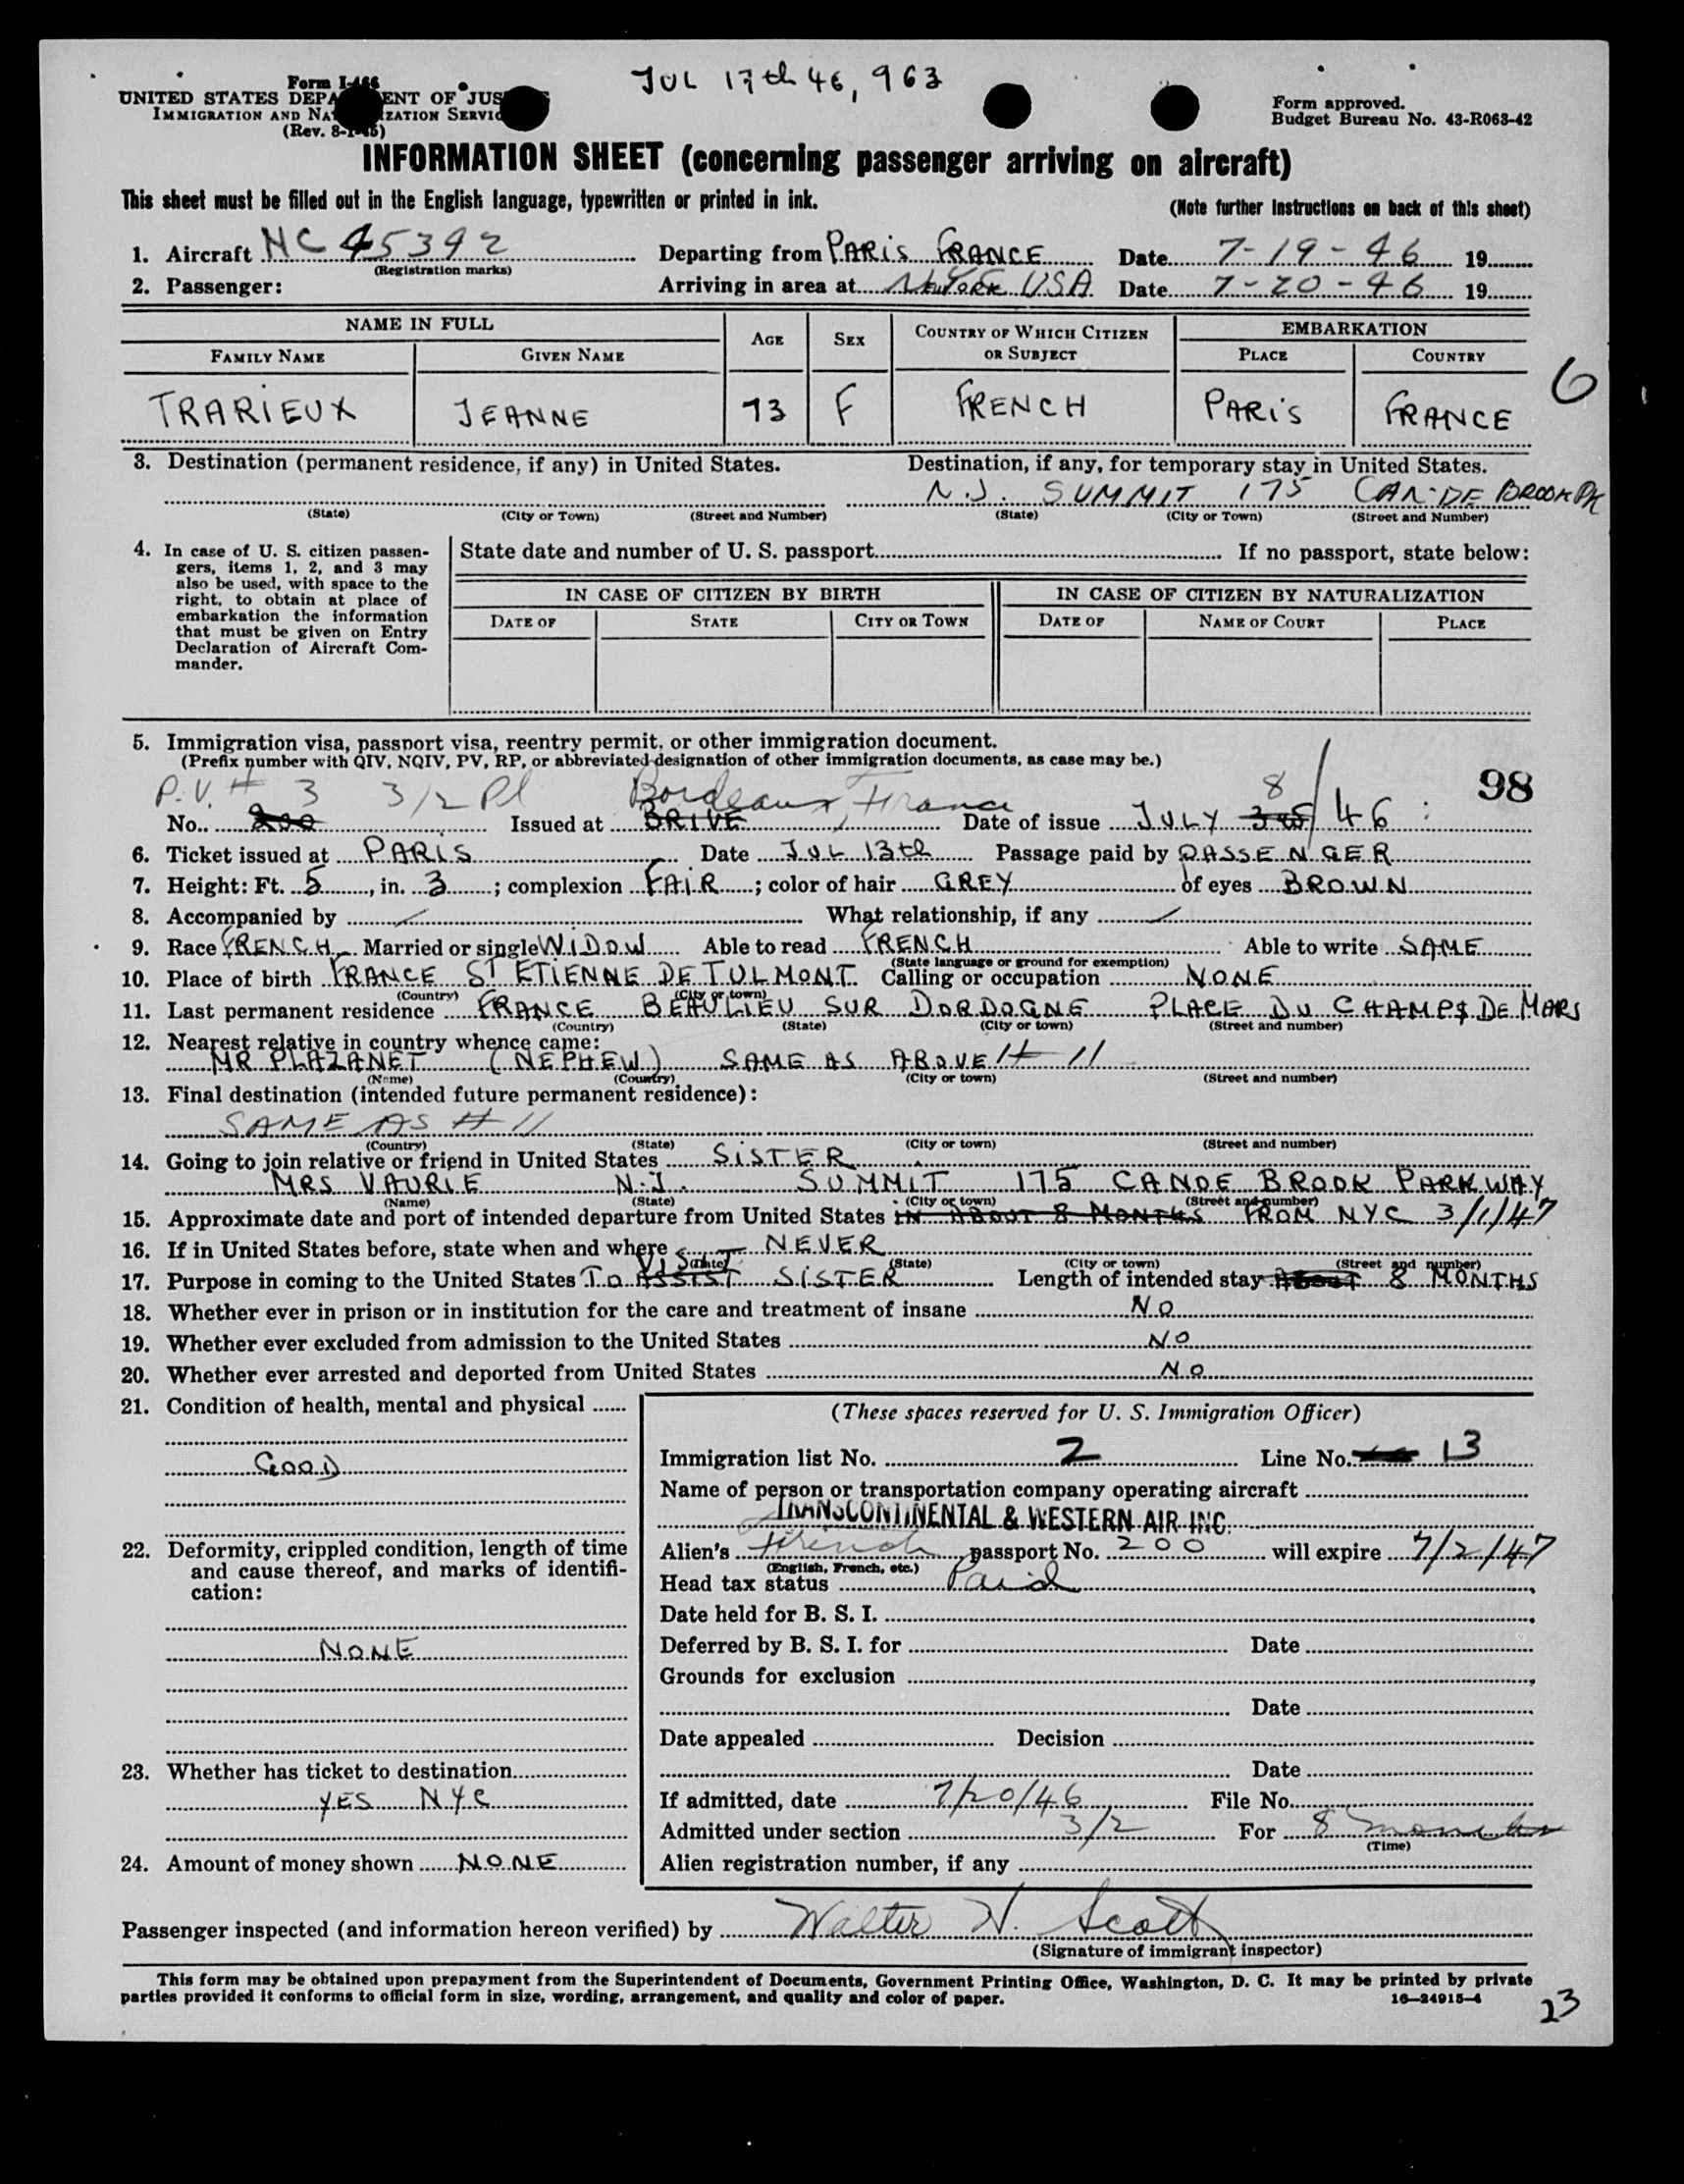 JUL 17th 46, 963
Form I-466
UNITED STATES DEPA ENT OF JUS
IMMIGRATION AND NA IZATION SERVIC
(Rev. 8-1-45)
Form approved.
Budget Bureau No. 43-R063-42
INFORMATION SHEET (concerning passenger arriving on aircraft)
This sheet must be filled out in the English language, typewritten or printed in ink.
(Note further instructions on back of this sheet)
1. Aircraft NC 45392 Departing from PARIS FRANCE Date 7-19-46 19
(Registration marks)
2. Passenger: Arriving in area at NewYork USA Date 7-20-46 19
NAME IN FULL AGE SEX COUNTRY OF WHICH CITIZEN OR SUBJECT EMBARKATION
FAMILY NAME GIVEN NAME PLACE COUNTRY
TRARIEUX JEANNE 73 F FRENCH PARIS FRANCE
6
3. Destination (permanent residence, if any) in United States. Destination, if any, for temporary stay in United States.
N.J. SUMMIT 175 CAN-DE BROOK PK
(State) (City or Town) (Street and Number) (State) (City or Town) (Street and Number)
4. In case of U. S. citizen passen-
gers, items 1, 2, and 3 may
also be used, with space to the
right, to obtain at place of
embarkation the information
that must be given on Entry
Declaration of Aircraft Com-
mander.
State date and number of U. S. passport If no passport, state below:
IN CASE OF CITIZEN BY BIRTH IN CASE OF CITIZEN BY NATURALIZATION
DATE OF STATE CITY OR TOWN DATE OF NAME OF COURT PLACE
5. Immigration visa, passport visa, reentry permit, or other immigration document.
(Prefix number with QIV, NQIV, PV, RP, or abbreviated designation of other immigration documents, as case may be.)
98
P.V. # 3 3/2 Pl Bordeaux, France 8
No. 200 Issued at BRIVE Date of issue JULY / 46
6. Ticket issued at PARIS Date JUL 13th Passage paid by PASSENGER
7. Height: Ft. 5, in. 3; complexion FAIR; color of hair GREY of eyes BROWN
8. Accompanied by / What relationship, if any /
9. Race FRENCH Married or single WIDOW Able to read FRENCH Able to write SAME
(State language or ground for exemption)
10. Place of birth FRANCE ST ETIENNE DE TULMONT Calling or occupation NONE
(Country) (City or town)
11. Last permanent residence FRANCE BEAULIEU SUR DORDOGNE PLACE DU CHAMPS DE MARS
(Country) (State) (City or town) (Street and number)
12. Nearest relative in country whence came:
MR PLAZANET (NEPHEW) SAME AS ABOVE # 11
(Name) (Country) (City or town) (Street and number)
13. Final destination (intended future permanent residence):
SAME AS # 11
(Country) (State) (City or town) (Street and number)
14. Going to join relative or friend in United States SISTER
MRS VAURIE N.J. SUMMIT 175 CANOE BROOK PARKWAY
(Name) (State) (City or town) (Street and number)
15. Approximate date and port of intended departure from United States IN ABOUT 8 MONTHS FROM NYC 3/1/47
16. If in United States before, state when and where NEVER
(Date) (State) (City or town) (Street and number)
17. Purpose in coming to the United States TO ASSIST VISIT SISTER Length of intended stay ABOUT 8 MONTHS
18. Whether ever in prison or in institution for the care and treatment of insane NO
19. Whether ever excluded from admission to the United States NO
20. Whether ever arrested and deported from United States NO
21. Condition of health, mental and physical
GOOD
22. Deformity, crippled condition, length of time
and cause thereof, and marks of identifi-
cation:
NONE
23. Whether has ticket to destination
YES NYC
24. Amount of money shown NONE
(These spaces reserved for U. S. Immigration Officer)
Immigration list No. 2 Line No. 13
Name of person or transportation company operating aircraft
TRANSCONTINENTAL & WESTERN AIR INC.
Alien's French passport No. 200 will expire 7/2/47
(English, French, etc.)
Head tax status Paid
Date held for B. S. I.
Deferred by B. S. I. for Date
Grounds for exclusion
Date
Date appealed Decision
Date
If admitted, date 7/20/46 File No.
Admitted under section 3/2 For 8 months
(Time)
Alien registration number, if any
Passenger inspected (and information hereon verified) by Walter N. Scott
(Signature of immigrant inspector)
This form may be obtained upon prepayment from the Superintendent of Documents, Government Printing Office, Washington, D. C. It may be printed by private
parties provided it conforms to official form in size, wording, arrangement, and quality and color of paper.
16—24915-4
23